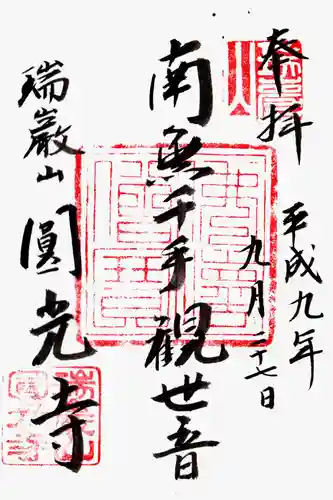 奉拝
平成九年
九月二十七日
南無千手観世音
瑞巖山
圓光寺